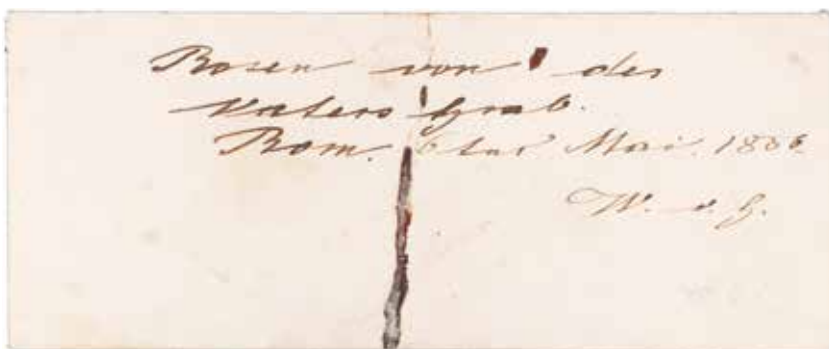 Rosen von des
Vaters Grab.
Rom. 6ter Mai.
W. v. G.